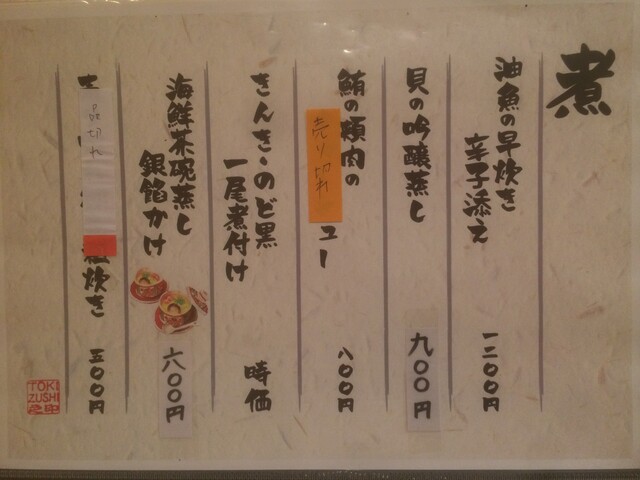 煮
油魚の早炊き
辛子添え
一二〇〇円
貝の吟醸蒸し
九〇〇円
鮪の頬肉の
売り切れ
ュー
八〇〇円
きんき・のど黒
一尾煮付け
時価
海鮮茶碗蒸し
銀餡かけ
六〇〇円
品切れ
炊き
五〇〇円
TOKI
ZUSHI